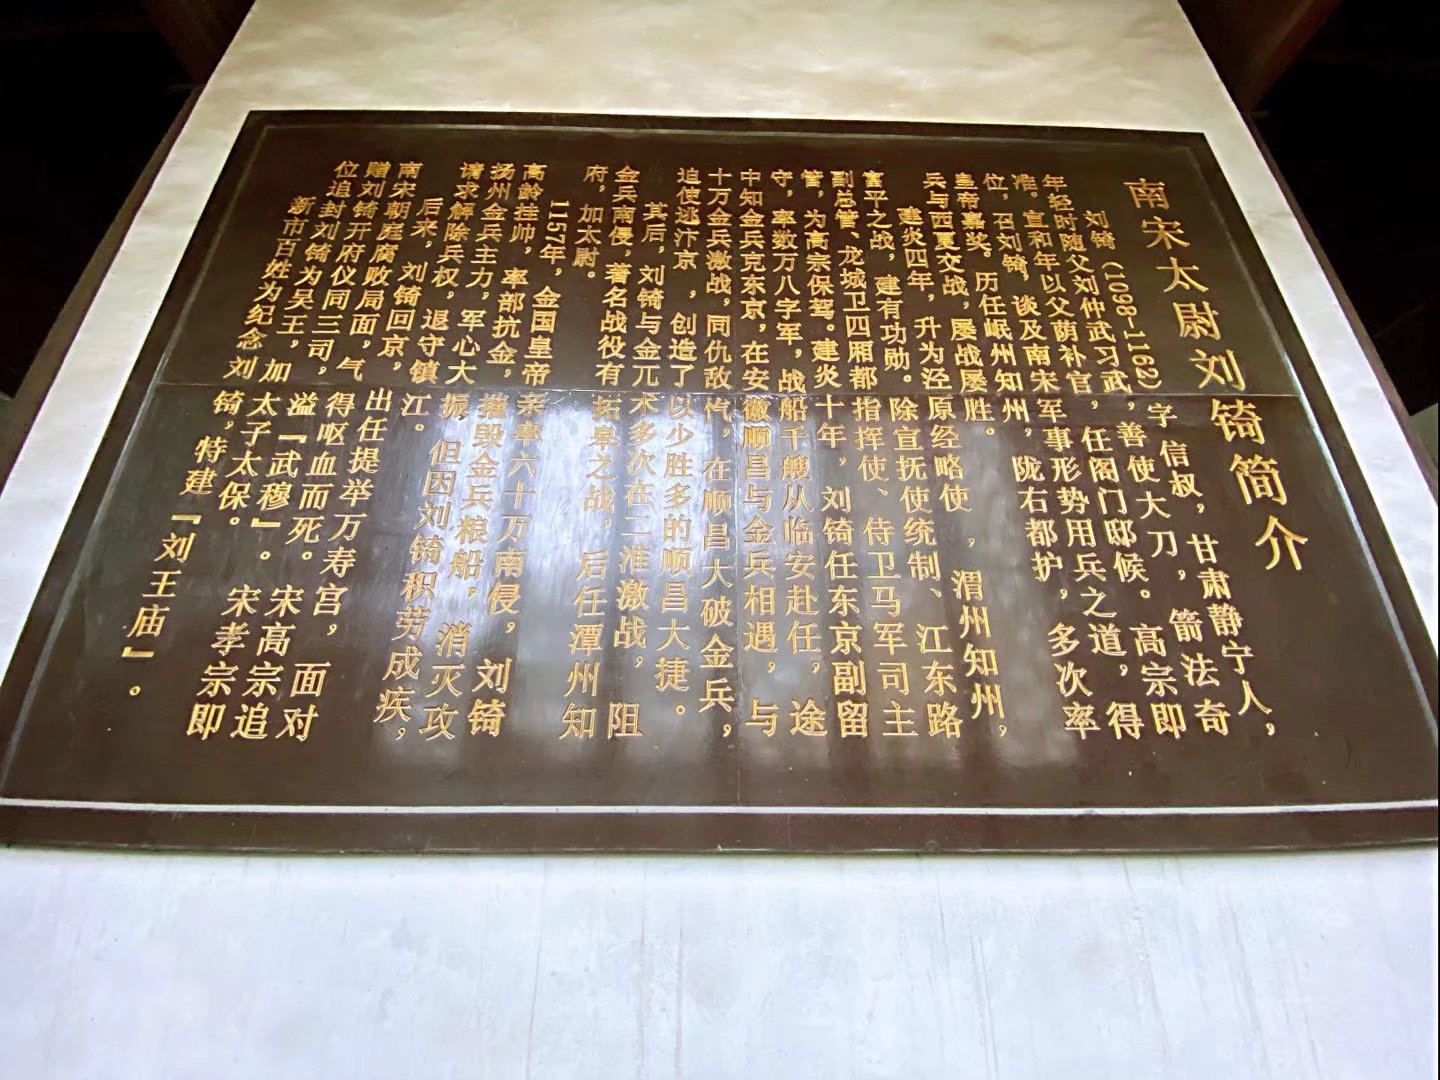 南宋太尉刘锜简介
刘锜（1098-1162）字信叔，甘肃静宁人，
年轻时随父刘仲武习武，善使大刀，箭法奇
准。宣和年以父荫补官，任阁门邸候。高宗即
位，召刘锜，谈及南宋军事形势用兵之道，得
皇帝嘉奖。历任岷州知州，陇右都护，多次率
兵与西夏交战，屡战屡胜。
建炎四年，升为泾原经略使，渭州知州，
富平之战，建有功勋。除宣抚使统制、江东路
副总管、龙城卫四厢都指挥使、侍卫马军司主
管，为高宗保驾。建炎十年，刘锜任东京副留
守，率数万八字军，战船千艘从临安赴任，途
中知金兵克东京，在安徽顺昌与金兵相遇，与
十万金兵激战，同仇敌忾，在顺昌大破金兵，
迫使逃汴京，创造了以少胜多的顺昌大捷。
其后，刘锜与金兀术多次在二淮激战，阻
金兵南侵，著名战役有拓皋之战，后任潭州知
府，加太尉。
1157年，金国皇帝亲率六十万南侵，刘锜
高龄挂帅，率部抗金，摧毁金兵粮船，消灭攻
扬州金兵主力，军心大振，但因刘锜积劳成疾，
请求解除兵权，退守镇江。
后来，刘锜回京，出任提举万寿宫，面对
南宋朝庭腐败局面，气得呕血而死。宋高宗追
赠刘锜开府仪同三司，溢『武穆』。宋孝宗即
位追封刘锜为吴王，加太子太保。
新市百姓为纪念刘锜，特建『刘王庙』。